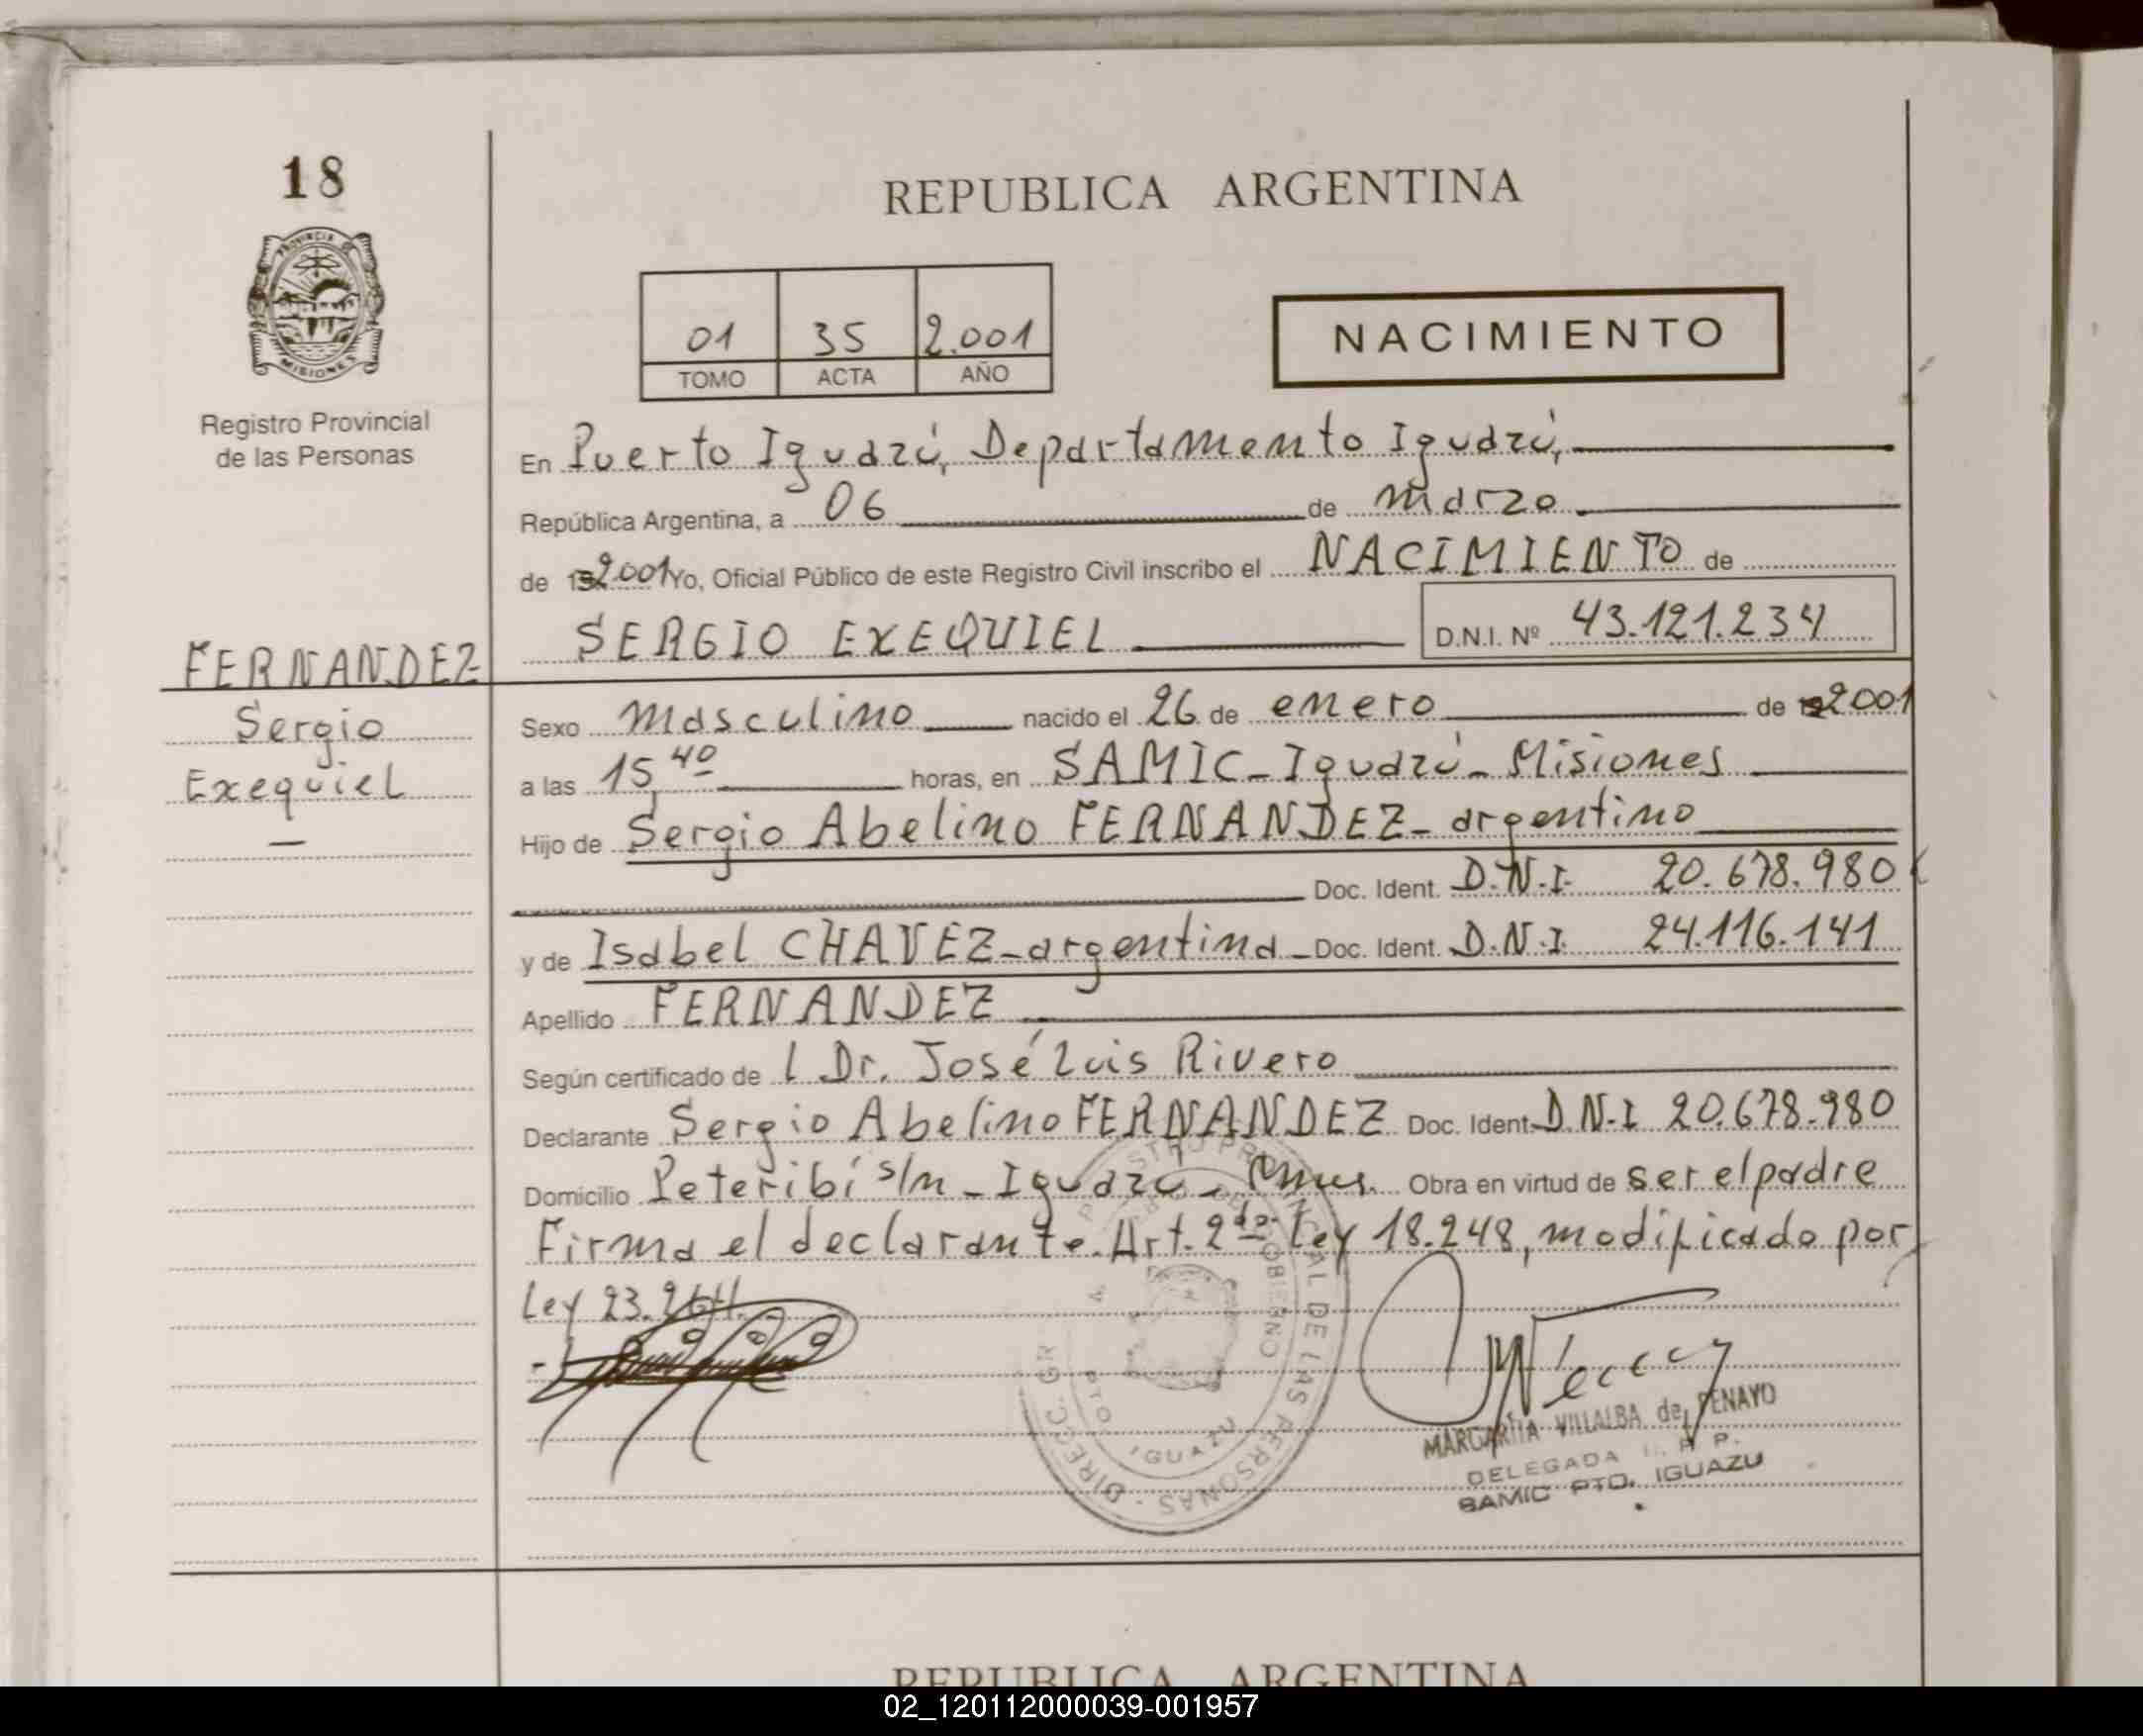 18
REPUBLICA ARGENTINA
PROVINCIA DE
MISIONES
Registro Provincial
de las Personas
01 35 2.001
TOMO ACTA AÑO
NACIMIENTO
En Puerto Iguazú, Departamento Iguazú,
República Argentina, a 06 de marzo
de 192001 Yo, Oficial Público de este Registro Civil inscribo el NACIMIENTO de
SERGIO EXEQUIEL D.N.I. Nº 43.121.234
FERNANDEZ
Sergio
Exequiel
—
Sexo masculino nacido el 26 de enero de 192001
a las 15,40 horas, en SAMIC - Iguazú - Misiones
Hijo de Sergio Abelino FERNANDEZ - argentino
Doc. Ident. D.N.I. 20.678.980
y de Isabel CHAVEZ - argentina - Doc. Ident. D.N.I. 24.116.141
Apellido FERNANDEZ
Según certificado de l Dr. José Luis Rivero
Declarante Sergio Abelino FERNANDEZ Doc. Ident. D.N.I 20.678.980
Domicilio Peteribí s/n - Iguazú - Mnes. Obra en virtud de ser el padre
Firma el declarante. Art. 2do. Ley 18.248, modificado por
Ley 23.264.
REGISTRO PROVINCIAL DE LAS PERSONAS - DIRECC. GR
PTO IGUAZU
MARGARITA VILLALBA de PENAYO
DELEGADA R. P.
SAMIC PTO. IGUAZU
REPUBLICA ARGENTINA
02_120112000039-001957